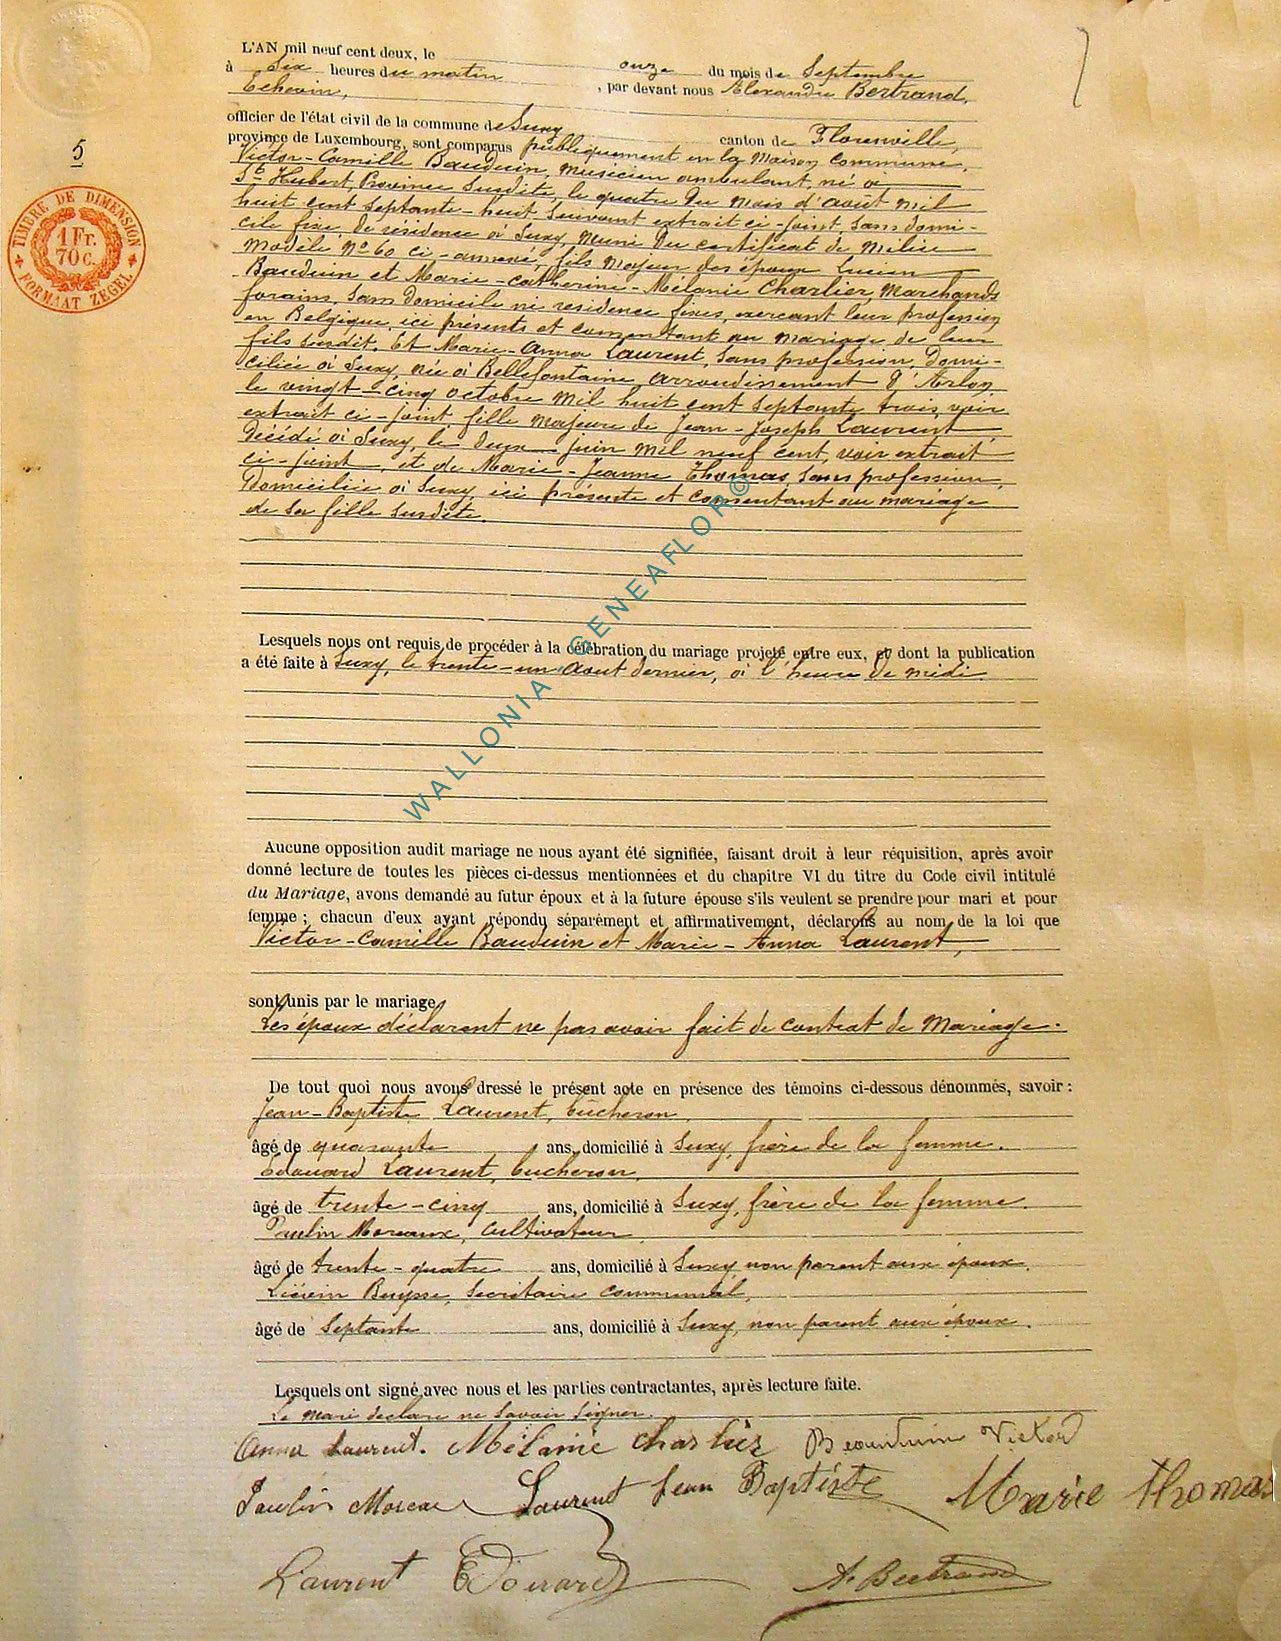 L'AN mil neuf cent deux, le onze du mois de Septembre
à Six heures du matin, par devant nous Alexandre Bertrand,
Echevin,
officier de l'état civil de la commune de Suxy canton de Florenville,
province de Luxembourg, sont comparus publiquement en la maison commune,
Victor-Camille Bauduin, musicien ambulant, né à
St Hubert, Province susdite, le quatre du mois d'août mil
huit cent septante-huit, suivant extrait ci-joint, sans domi-
cile fixe, de résidence à Suxy, muni du certificat de milice
modèle No 60 ci-annexé, fils majeur des époux Lucien
Bauduin et Marie-Catherine-Mélanie Charlier, marchands
forains, sans domicile ni residence fixes, exercant leur profession
en Belgique, ici présents et consentant au mariage de leur
fils susdit. Et Marie-Anna Laurent, sans profession, domi-
ciliée à Suxy, née à Bellefontaine, arrondissement d'Arlon,
le vingt-cinq octobre mil huit cent septante trois, voir
extrait ci-joint, fille majeure de Jean-Joseph Laurent,
décédé à Suxy, le deux juin mil neuf cent, voir extrait
ci-joint, et de Marie-Jeanne Thomas, sans profession,
domiciliée à Suxy, ici présente et consentant au mariage
de sa fille susdite.
Lesquels nous ont requis de procéder à la célébration du mariage projeté entre eux, et dont la publication
a été faite à Suxy, le trente-un Août dernier, à l'heure de midi
Aucune opposition audit mariage ne nous ayant été signifiée, faisant droit à leur réquisition, après avoir
donné lecture de toutes les pièces ci-dessus mentionnées et du chapitre VI du titre du Code civil intitulé
du Mariage, avons demandé au futur époux et à la future épouse s'ils veulent se prendre pour mari et pour
femme ; chacun d'eux ayant répondu séparément et affirmativement, déclarons au nom de la loi que
Victor-Camille Bauduin et Marie-Anna Laurent,
sont unis par le mariage
Les époux déclarent ne pas avoir fait de contrat de mariage.
De tout quoi nous avons dressé le présent acte en présence des témoins ci-dessous dénommés, savoir :
Jean-Baptiste Laurent, bûcheron,
âgé de quarante ans, domicilié à Suxy, frère de la femme.
Edouard Laurent, bucheron,
âgé de trente-cinq ans, domicilié à Suxy, frère de la femme.
Paulin Moreaux, cultivateur,
âgé de trente-quatre ans, domicilié à Suxy non parent aux époux.
Buysse, Secrétaire communal,
âgé de Septante ans, domicilié à Suxy, non parent aux époux.
Lesquels ont signé avec nous et les parties contractantes, après lecture faite.
Le mari declare ne savoir signer.
Anna Laurent. Mélanie Charlier Beauduin Victor
Paulin Moreau Laurent Jean Baptiste Marie Thomas
Laurent Edouard A. Bertrand
5
TIMBRE DE DIMENSION
1 Fr.
70 c.
FORMAAT ZEGEL
WALLONIA - GENEAFLOR©